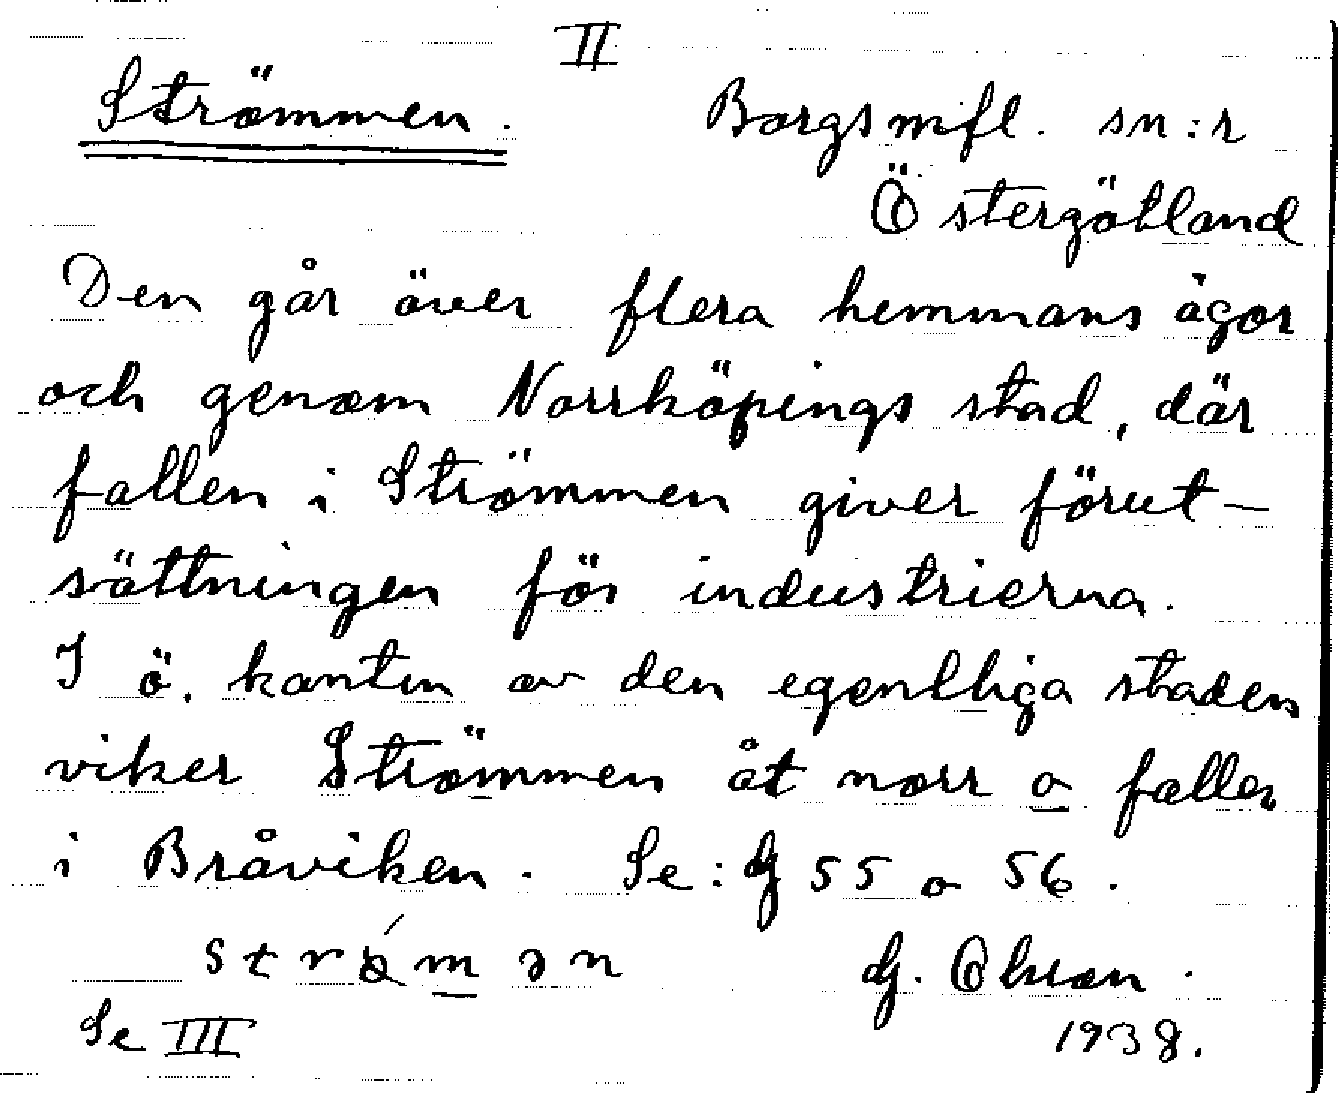 II
Strömmen. Borgs mfl. sn:r
Östergötland
Den går över flera hemmans ägor
och genom Norrköpings stad, där
fallen i Strömmen giver förut-
sättningen för industrierna.
I ö. kanten av den egentliga staden
viker Strömmen åt norr o faller
i Bråviken. Se: G 55 o 56.
G.
Se III 1938.